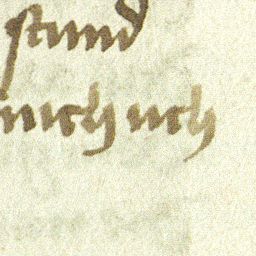 stund
mich uch